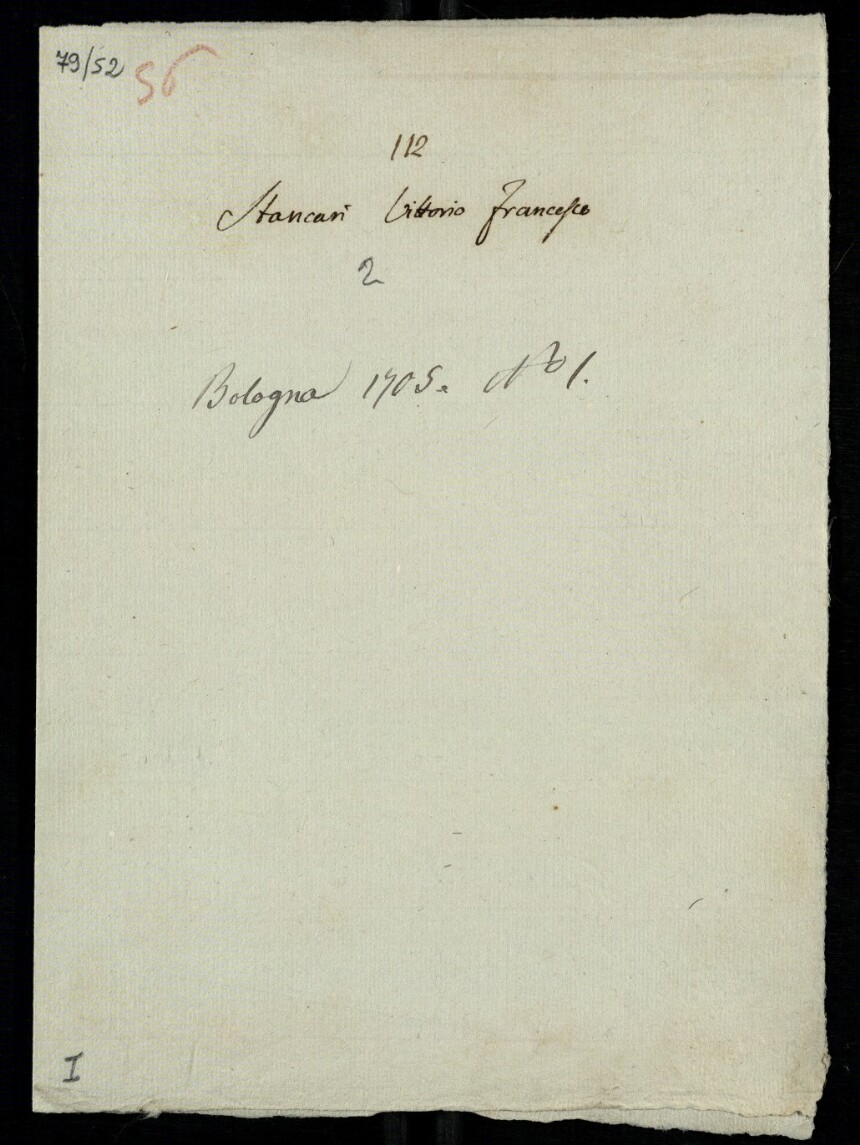 79/52 56
112
Stancari Vittorio Francesco
2
Bologna 1705. No 1.
I